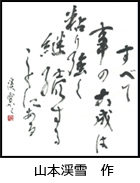 すべて
事の大成は
粘り強く
継続する
ことにある
渓雪
山本渓雪 作